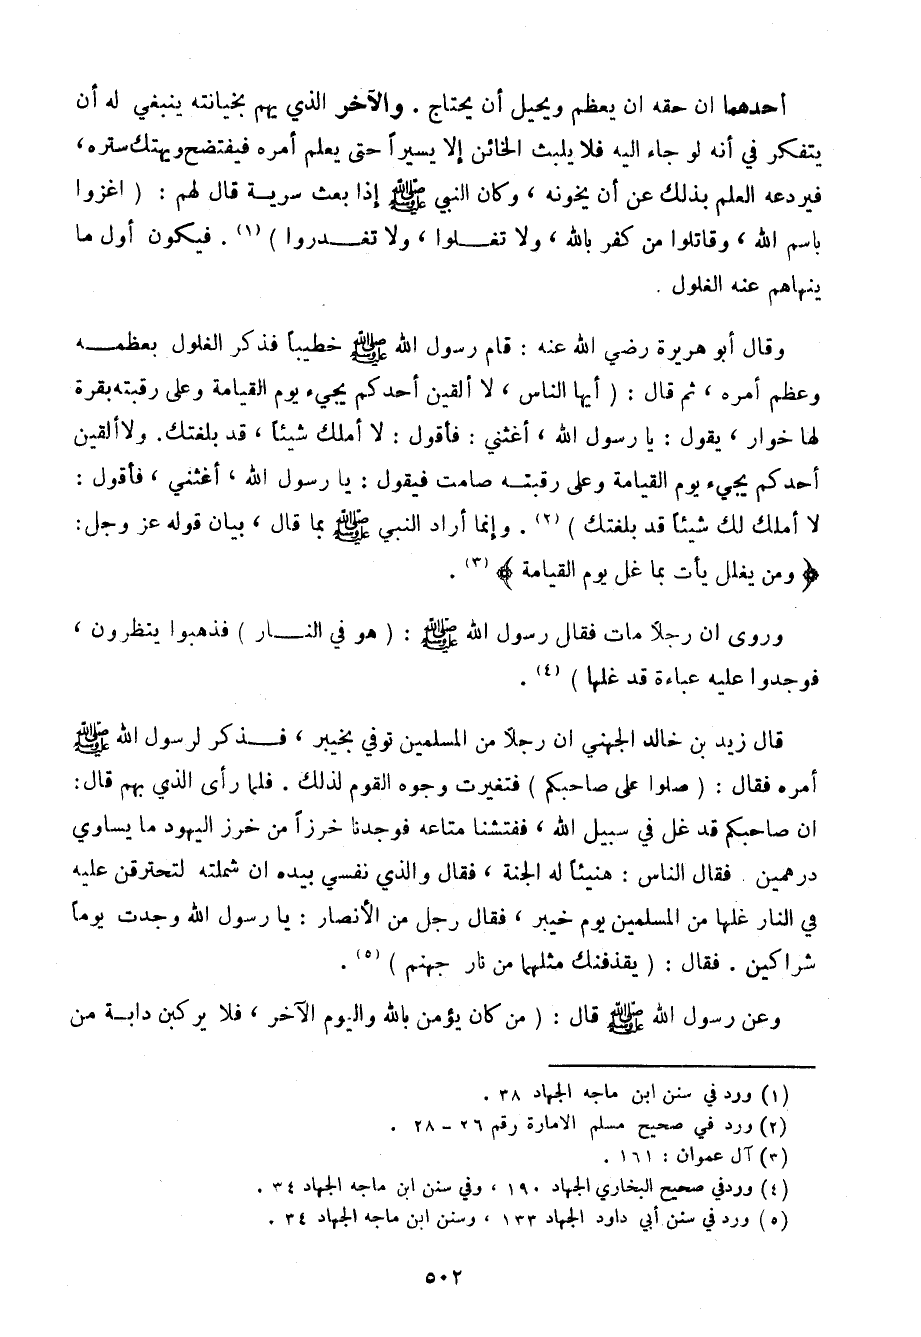 أحدهما ان حقه ان يعظم ويحيل أن يحتاج . والآخر الذي يهم بخيانته ينبغي له أن
يتفكر في أنه لو جاء اليه فلا يلبث الخائن إلا يسيراً حتى يعلم أمره فيفتضح ويهتك ستره ،
فيردعه العلم بذلك عن أن يخونه ، وكان النبي ﷺ إذا بعث سرية قال لهم : ( اغزوا
باسم الله ، وقاتلوا من كفر بالله ، ولا تغلوا ، ولا تغدروا ) (١) . فيكون أول ما
ينهاهم عنه الغلول .
وقال أبو هريرة رضي الله عنه : قام رسول الله ﷺ خطيباً فذكر الغلول بعظمه
وعظم أمره ، ثم قال : ( أيها الناس ، لا ألقين أحدكم يجيء يوم القيامة وعلى رقبته بقرة
لها خوار ، يقول : يا رسول الله ، أغثني : فأقول : لا أملك شيئاً ، قد بلغتك. ولا ألقين
أحدكم يجيء يوم القيامة وعلى رقبته صامت فيقول : يا رسول الله ، أغثني ، فأقول :
لا أملك لك شيئاً قد بلغتك ) (٢) . وإنما أراد النبي ﷺ بما قال ، بيان قوله عز وجل :
﴿ ومن يغلل يأت بما غل يوم القيامة ﴾ (٣) .
وروى ان رجلاً مات فقال رسول الله ﷺ : ( هو في النار ) فذهبوا ينظرون ،
فوجدوا عليه عباءة قد غلها ) (٤) .
قال زيد بن خالد الجهني ان رجلاً من المسلمين توفي بخيبر ، فذكر لرسول الله ﷺ
أمره فقال : ( صلوا على صاحبكم ) فتغيرت وجوه القوم لذلك . فلما رأى الذي بهم قال :
ان صاحبكم قد غل في سبيل الله ، ففتشنا متاعه فوجدنا خرزاً من خرز اليهود ما يساوي
درهمين . فقال الناس : هنيئاً له الجنة ، فقال والذي نفسي بيده ان شملته لتحترقن عليه
في النار غلها من المسلمين يوم خيبر ، فقال رجل من الأنصار : يا رسول الله وجدت يوماً
شراكين . فقال : ( يقذفنك مثلها من نار جهنم ) (٥) .
وعن رسول الله ﷺ قال : ( من كان يؤمن بالله واليوم الآخر ، فلا يركبن دابة من
(١) ورد في سنن ابن ماجه الجهاد ٣٨ .
(٢) ورد في صحيح مسلم الامارة رقم ٢٦ - ٢٨ .
(٣) آل عموان : ١٦١ .
(٤) وردفي صحيح البخاري الجهاد ١٩٠ ، وفي سنن ابن ماجه الجهاد ٣٤ .
(٥) ورد في سنن أبي داود الجهاد ١٣٣ ، وسنن ابن ماجه الجهاد ٣٤ .
٥٠٢